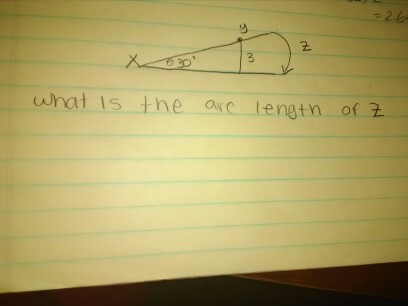 = 2.6
y
z
X
30°
3
what is the arc length of z